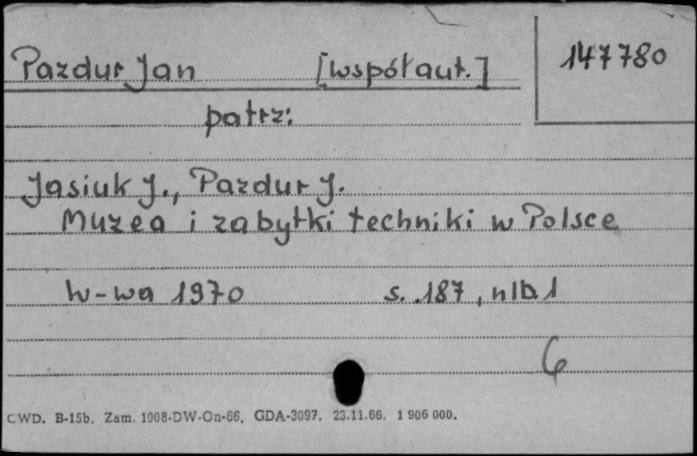 Pazdur Jan [współaut.] 147780
patrz:
Jasiuk J., Pazdur J.
Muzea i zabytki techniki w Polsce
W-wa 1970 s. 187, nlb. 1
6
CWD. B-15b. Zam. 1008-DW-On-66. GDA-3097. 23.11.66. 1 906 000.